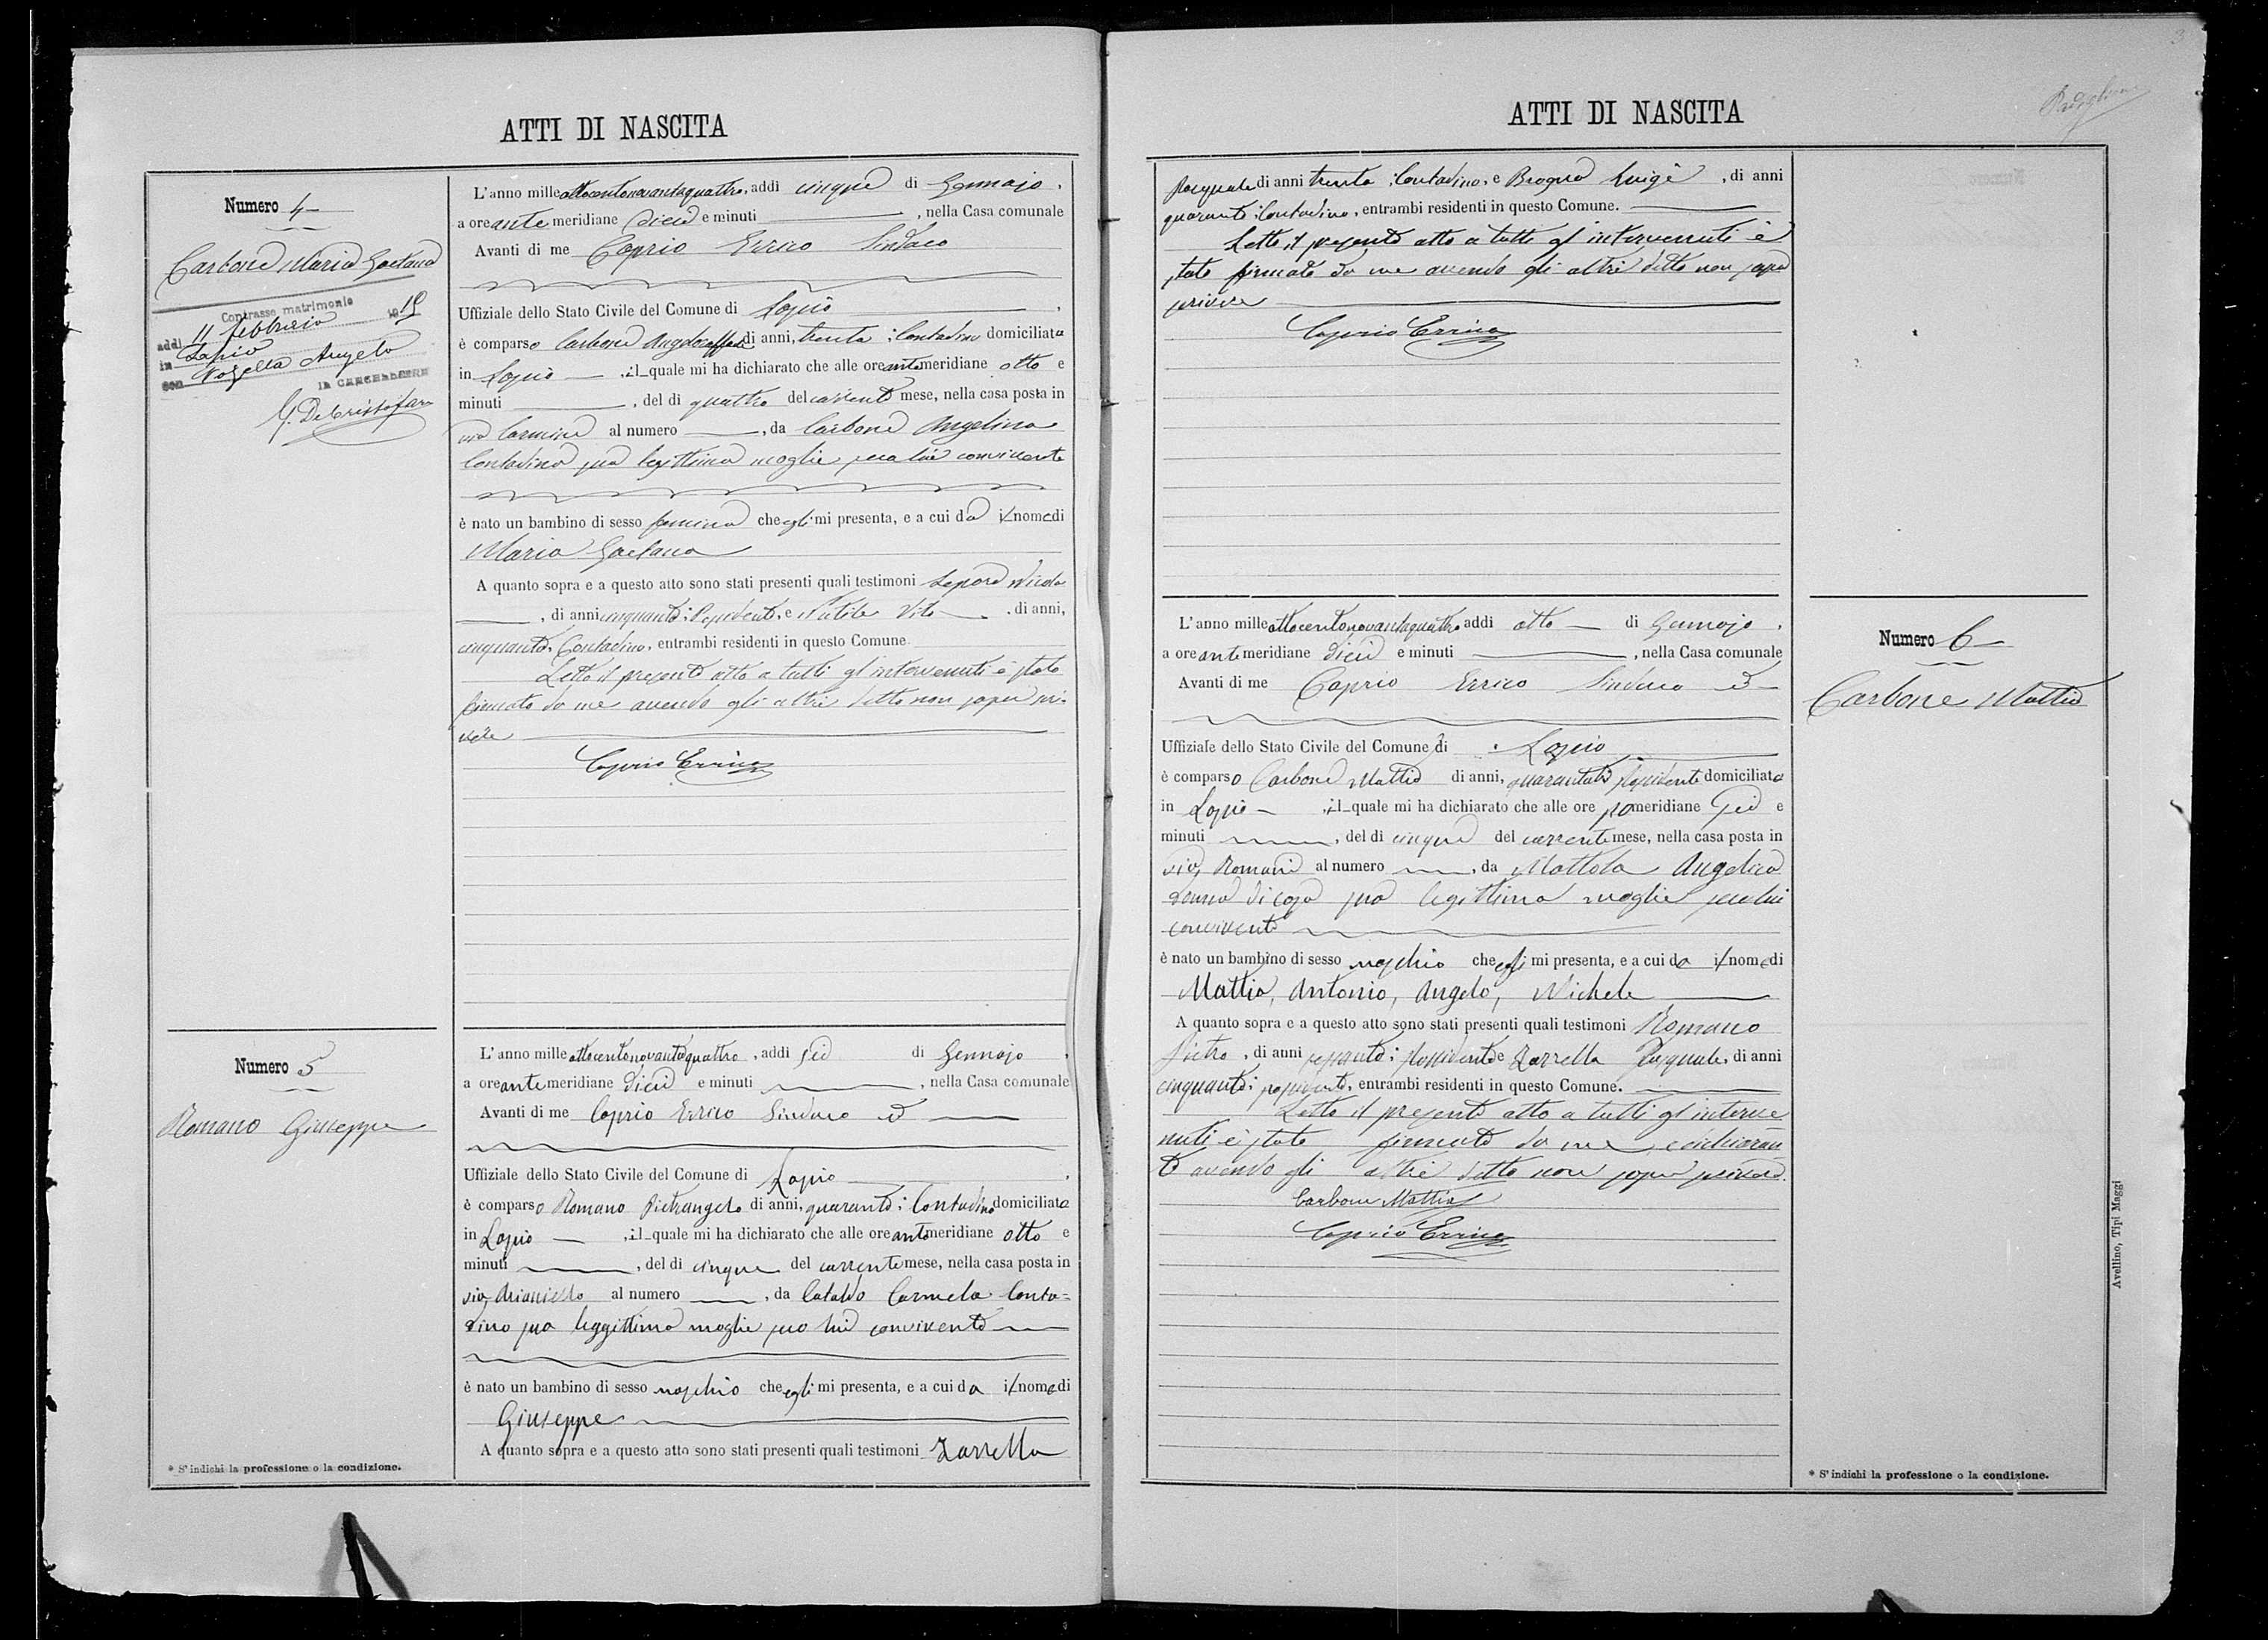 ATTI DI NASCITA
Numero 4
Carbone Maria Gaetana
Contrasse matrimonio
addì 11 febbraio 1919
in Lapio
con Angelo
IL CANCELLIERE
G. DeCristofaro
L'anno milleottocentonovantaquattro, addì cinque di Gennajo,
a ore ante meridiane dieci e minuti , nella Casa comunale
Avanti di me Caprio Errico Sindaco
Uffiziale dello Stato Civile del Comune di Lapio ,
è comparso Carbone Angeloraffaele di anni, trenta; Contadino domiciliato
in Lapio , il quale mi ha dichiarato che alle ore antemeridiane otto e
minuti , del dì quattro del corrente mese, nella casa posta in
via Carmine al numero , da Carbone Angelina
Contadina sua legittima moglie seco lui convivente
è nato un bambino di sesso femina che egli mi presenta, e a cui dà il nome di
Maria Gaetana
A quanto sopra e a questo atto sono stati presenti quali testimoni Lepore Nicola
, di anni cinquanta; Possidente, e Vito , di anni,
cinquanta, Contadino, entrambi residenti in questo Comune.
Letto il presente atto a tutti gl'intervenuti è stato
firmato da me avendo gli altri detto non saper scri-
vere
Caprio Errico
Numero 5
Romano Giuseppe
L'anno milleottocentonovantaquattro, addì sei di Gennajo ,
a ore antemeridiane dieci e minuti , nella Casa comunale
Avanti di me Caprio Errico Sindaco ed
Uffiziale dello Stato Civile del Comune di Lapio ,
è comparso Romano Pietrangelo di anni, quaranta; Contadino domiciliato
in Lapio , il quale mi ha dichiarato che alle ore antemeridiane otto e
minuti , del dì cinque del corrente mese, nella casa posta in
via Arianiello al numero , da Cataldo Carmela Conta-
dina sua leggittima moglie seco lui convivente
è nato un bambino di sesso maschio che egli mi presenta, e a cui da il nome di
Giuseppe
A quanto sopra e a questo atto sono stati presenti quali testimoni Zarrella
* S'indichi la professione o la condizione.
3
ATTI DI NASCITA
Pasquale di anni trenta; Contadino, e Brogna Luigi , di anni
quaranta; Contadino, entrambi residenti in questo Comune.
Letto il presente atto a tutti gl'intervenuti è
stato firmato da me avendo gli altri detto non saper
scrivere
Caprio Errico
L'anno milleottocentonovantaquattro addì otto di Gennajo ,
a ore antemeridiane dieci e minuti , nella Casa comunale
Avanti di me Caprio Errico Sindaco ed
Uffiziale dello Stato Civile del Comune di Lapio
è comparso Carbone Mattia di anni, possidente domiciliato
in Lapio , il quale mi ha dichiarato che alle ore pomeridiane sei e
minuti , del dì cinque del corrente mese, nella casa posta in
via Romani al numero , da Mottola Angelica
Donna di casa sua legittima moglie seco lui
convivente
è nato un bambino di sesso maschio che egli mi presenta, e a cui da il nome di
Mattia, Antonio, Angelo, Michele
A quanto sopra e a questo atto sono stati presenti quali testimoni Romano
Pietro , di anni sessanta; possidente e Zarrella Pasquale, di anni
cinquanta; possidente, entrambi residenti in questo Comune.
Letto il presente atto a tutti gl'interve
nuti è stato firmato da me e dichiaran
te avendo gli altri detto non saper scrivere.
Carbone Mattia
Caprio Errico
Numero 6
Carbone Mattia
* S'indichi la professione o la condizione.
Avellino, Tipi Maggi